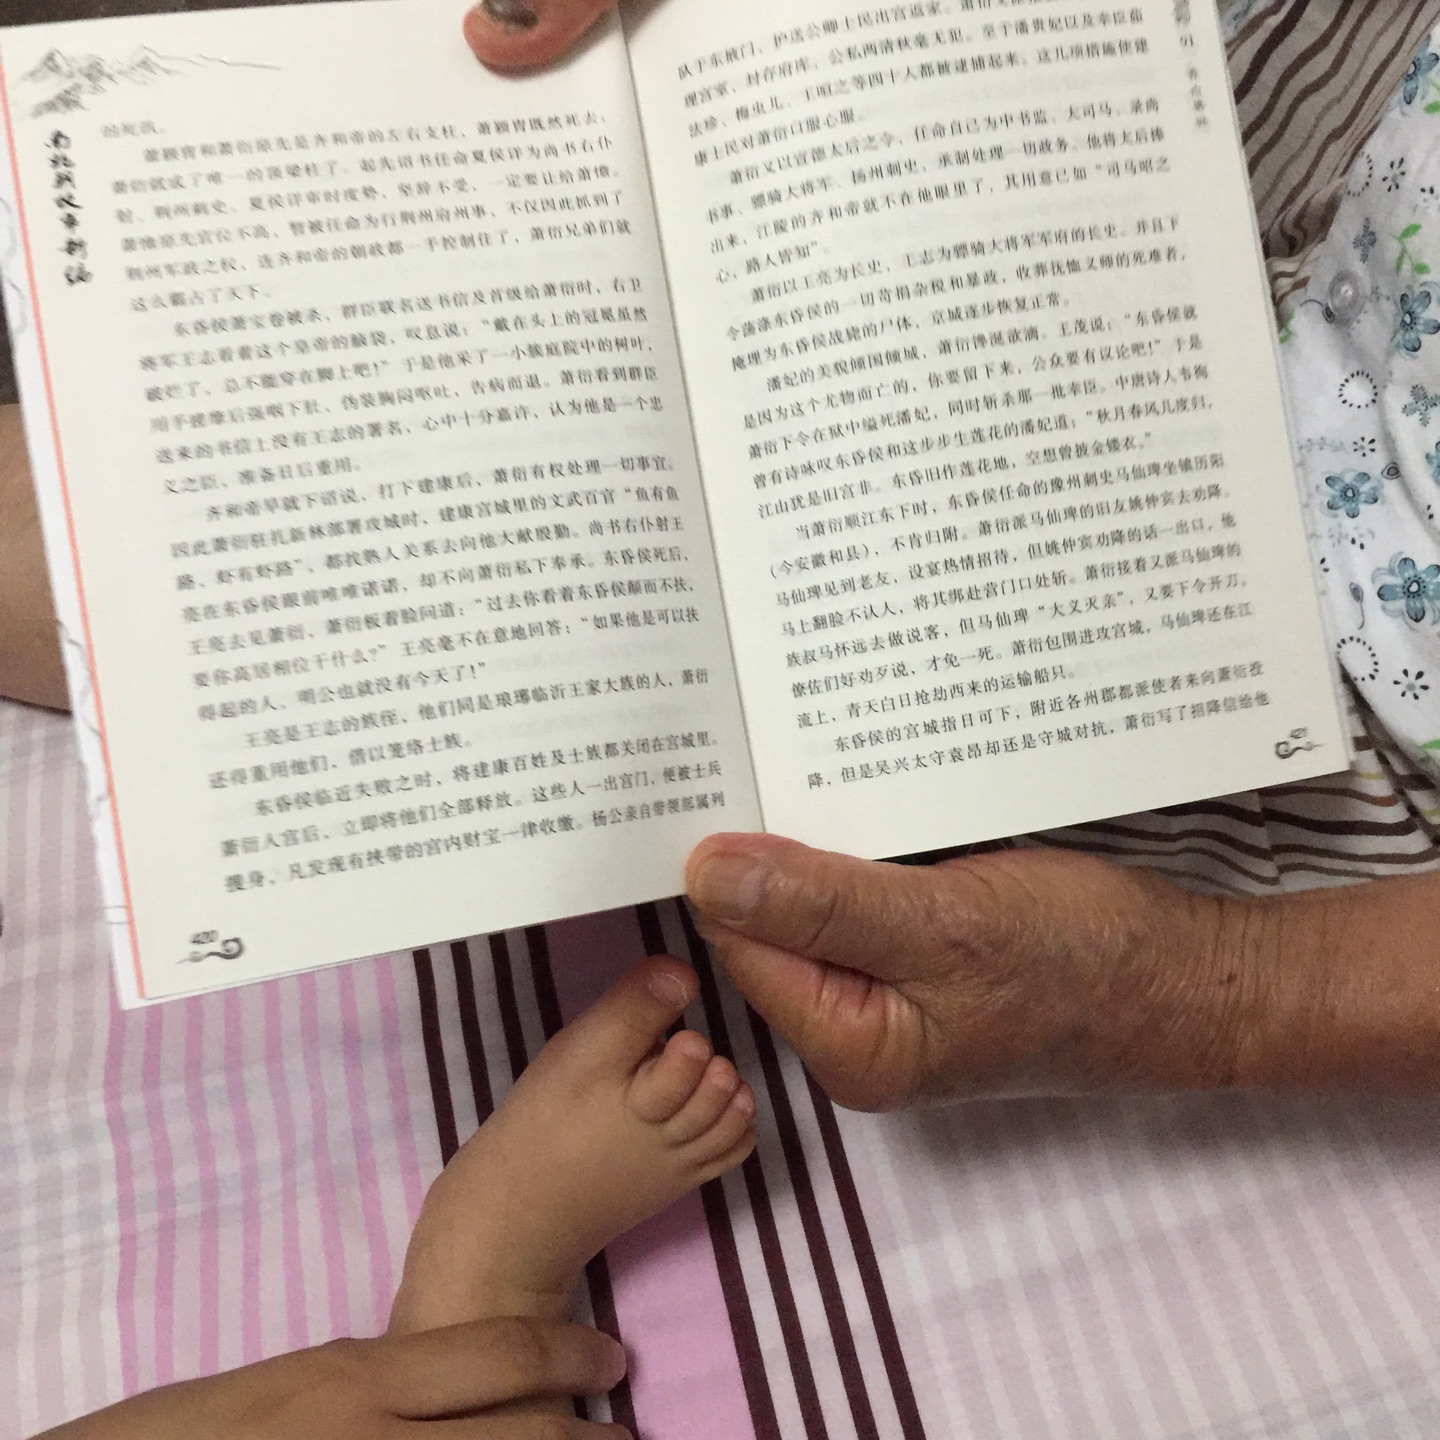 南北朝故事新编
的爱戴。
萧颖胄和萧衍原先是齐和帝的左右支柱，萧颖胄既然死去，
萧衍就成了唯一的顶梁柱了。起先诏书任命夏侯详为尚书右仆
射、荆州刺史，夏侯详审时度势，坚辞不受，一定要让给萧憺。
萧憺原先官位不高，暂被任命为行荆州府州事，不仅因此抓到了
荆州军政之权，连齐和帝的朝政都一手控制住了，萧衍兄弟们就
这么霸占了天下。
东昏侯萧宝卷被杀，群臣联名送书信及首级给萧衍时，右卫
将军王志看着这个皇帝的脑袋，叹息说：“戴在头上的冠冕虽然
破烂了，总不能穿在脚上吧！”于是他采了一小簇庭院中的树叶，
用手搓摩后强咽下肚，伪装胸闷呕吐，告病而退。萧衍看到群臣
送来的书信上没有王志的署名，心中十分嘉许，认为他是一个忠
义之臣，准备日后重用。
齐和帝早就下诏说，打下建康后，萧衍有权处理一切事宜。
因此萧衍驻扎新林部署攻城时，建康宫城里的文武百官“鱼有鱼
路、虾有虾路”，都找熟人关系去向他大献殷勤。尚书右仆射王
亮在东昏侯跟前唯唯诺诺，却不向萧衍私下奉承。东昏侯死后，
王亮去见萧衍，萧衍板着脸问道：“过去你看着东昏侯颠而不扶，
要你高居相位干什么？”王亮毫不在意地回答：“如果他是可以扶
得起的人，明公也就没有今天了！”
王亮是王志的族侄，他们同是琅琊临沂王家大族的人，萧衍
还得重用他们，借以笼络士族。
东昏侯临近失败之时，将建康百姓及士族都关闭在宫城里。
萧衍入宫后，立即将他们全部释放。这些人一出宫门，便被士兵
搜身，凡发现有挟带的宫内财宝一律收缴。杨公亲自带领部属列
420
91
队于东掖门，护送公卿士民出宫返家。萧衍又派
理宫室，封存府库，公私两清秋毫无犯。至于潘贵妃以及幸臣茹
法珍、梅虫儿、王咺之等四十人都被逮捕起来。这几项措施使建
康士民对萧衍口服心服。
萧衍又以宣德太后之令，任命自己为中书监、大司马、录尚
书事、骠骑大将军、扬州刺史，承制处理一切政务。他将太后捧
出来，江陵的齐和帝就不在他眼里了，其用意已如“司马昭之
心，路人皆知”。
萧衍以王亮为长史，王志为骠骑大将军军府的长史。并且下
令荡涤东昏侯的一切苛捐杂税和暴政，收葬抚恤义师的死难者，
掩埋为东昏侯战毙的尸体，京城逐步恢复正常。
潘妃的美貌倾国倾城，萧衍馋涎欲滴。王茂说：“东昏侯就
是因为这个尤物而亡的，你要留下来，公众要有议论吧！”于是
萧衍下令在狱中缢死潘妃，同时斩杀那一批幸臣。中唐诗人韦徇
曾有诗咏叹东昏侯和这步步生莲花的潘妃道：“秋月春风几度归，
江山犹是旧宫非。东昏旧作莲花地，空想曾披金镂衣。”
当萧衍顺江东下时，东昏侯任命的豫州刺史马仙琕坐镇历阳
（今安徽和县），不肯归附。萧衍派马仙琕的旧友姚仲宾去劝降。
马仙琕见到老友，设宴热情招待，但姚仲宾劝降的话一出口，他
马上翻脸不认人，将其绑赴营门口处斩。萧衍接着又派马仙琕的
族叔马怀远去做说客，但马仙琕“大义灭亲”，又要下令开刀，
僚佐们好劝歹说，才免一死。萧衍包围进攻宫城，马仙琕还在江
流上，青天白日抢劫西来的运输船只。
东昏侯的宫城指日可下，附近各州郡都派使者来向萧衍投
降，但是吴兴太守袁昂却还是守城对抗，萧衍写了招降信给他
421